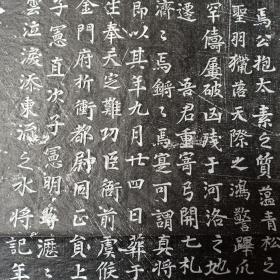 焉公抱太素之質蘊青松之
聖羽獵落天際之鴻警蹕
罕儔屢破凶殘于河洛之地
遷 吾君重寄弓開七札
濟〻焉鏘〻焉寔可謂真將
即以其年九月廿四日葬于
奉天定難功臣衙前虞候
金門府折衝都尉同正員上
子憲直次子憲明等瀝
雲泣淚添東流之水將記年